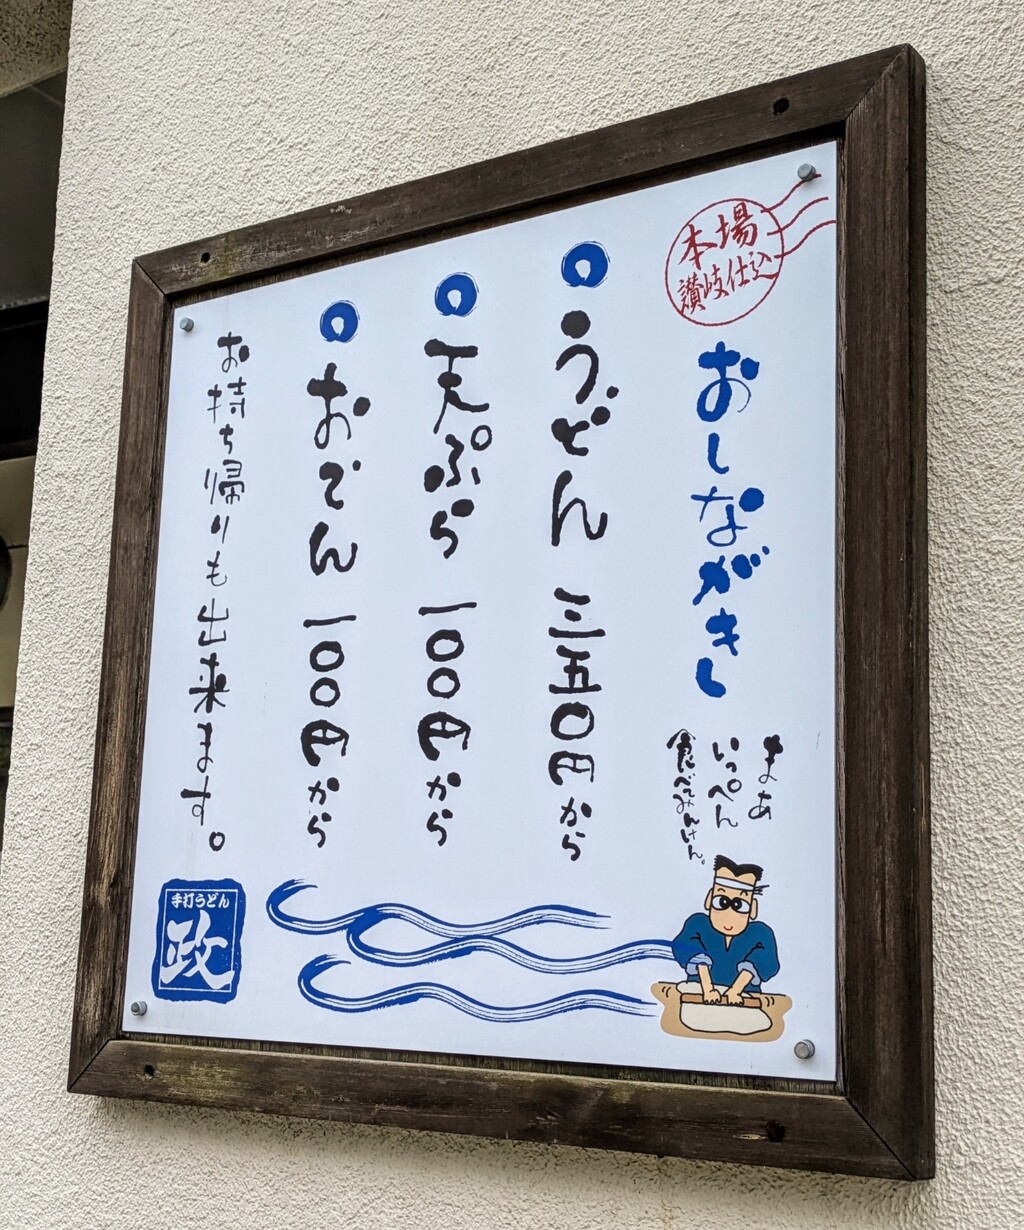 本場
讃岐仕込
おしながき
まあ
いっぺん
食べてみんけん。
うどん 三五〇円から
天ぷら 一〇〇円から
おでん 一〇〇円から
お持ち帰りも出来ます。
手打うどん
政